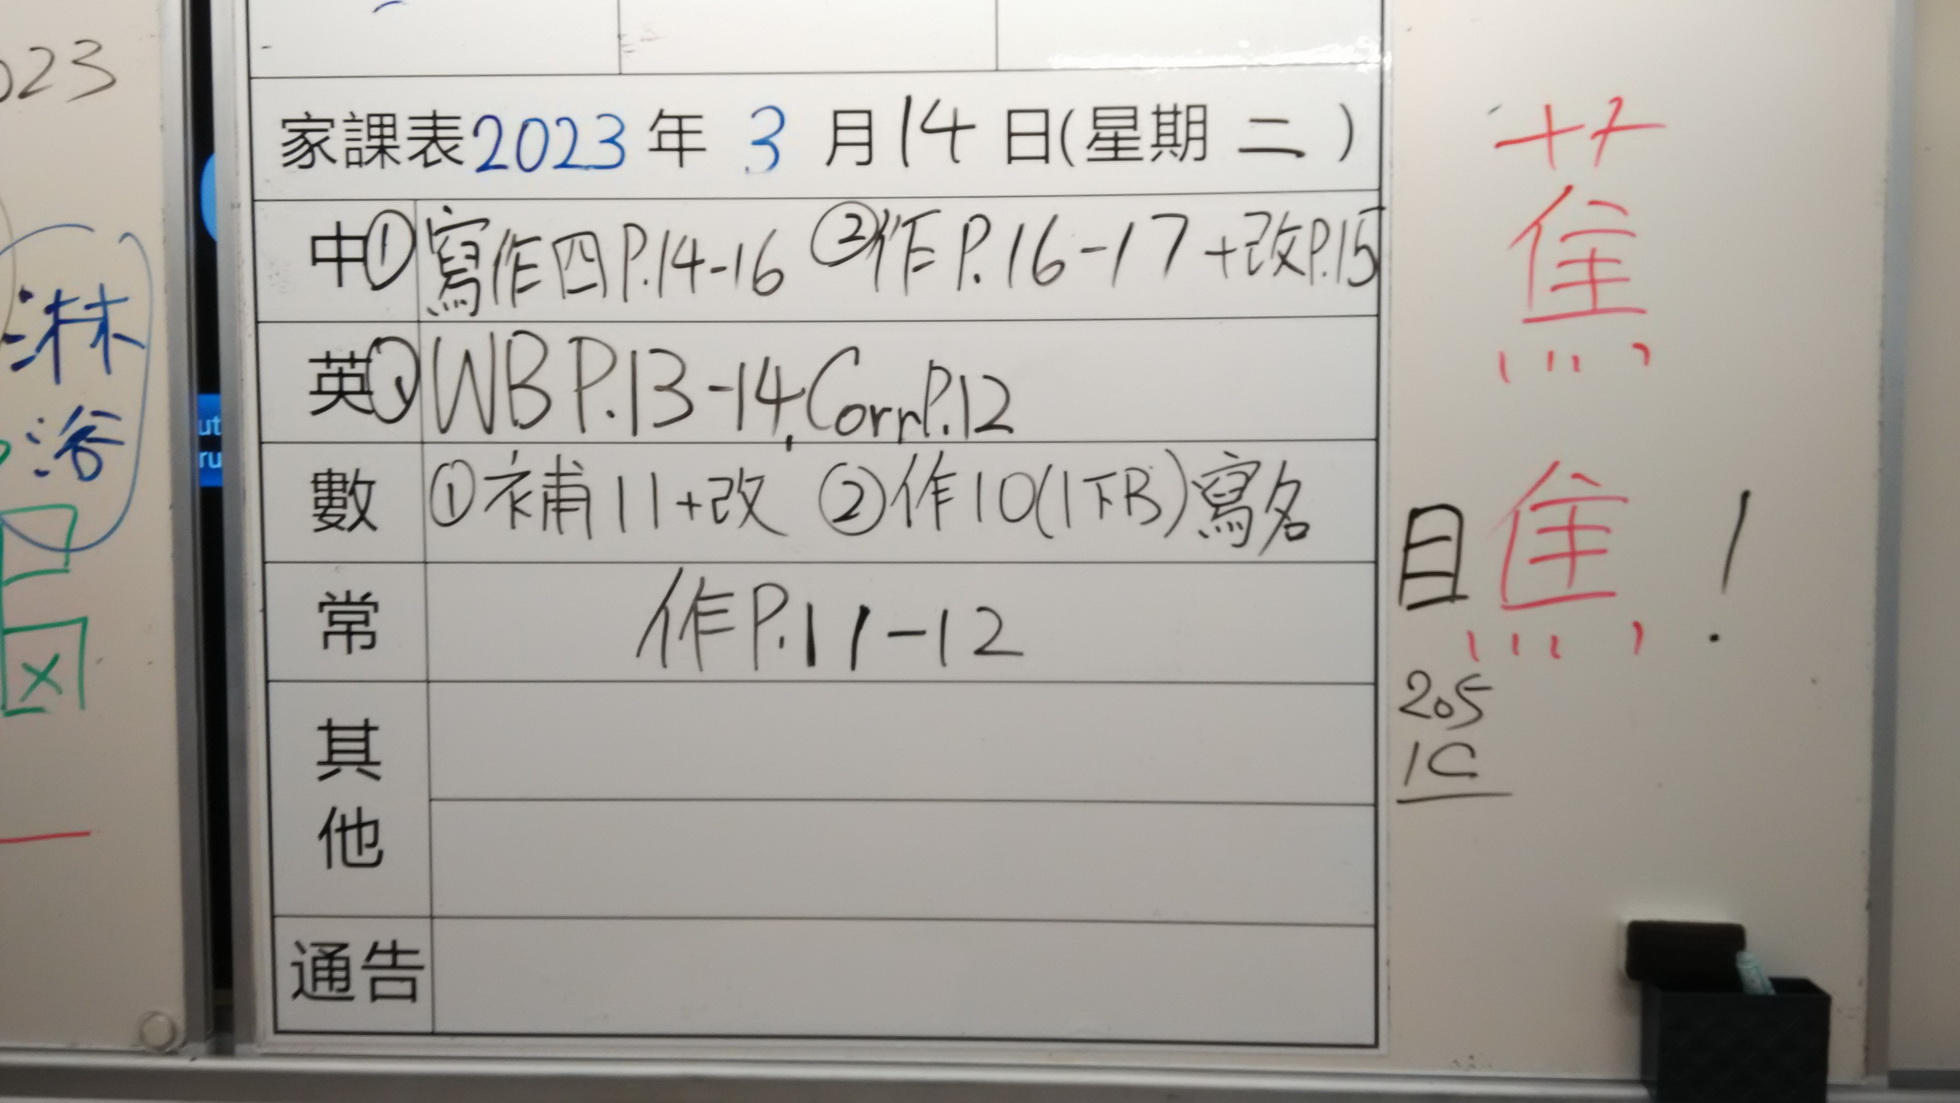 023
淋
浴
ut
ru
家課表2023年3月14日(星期二)
中① 寫作四P.14-16 ②作P.16-17+改P.15
英 WB P.13-14, Corr P.12
數 ①補11+改 ②作10(1下B)寫名
常 作P.11-12
其他
通告
蕉
瞧!
205
1C